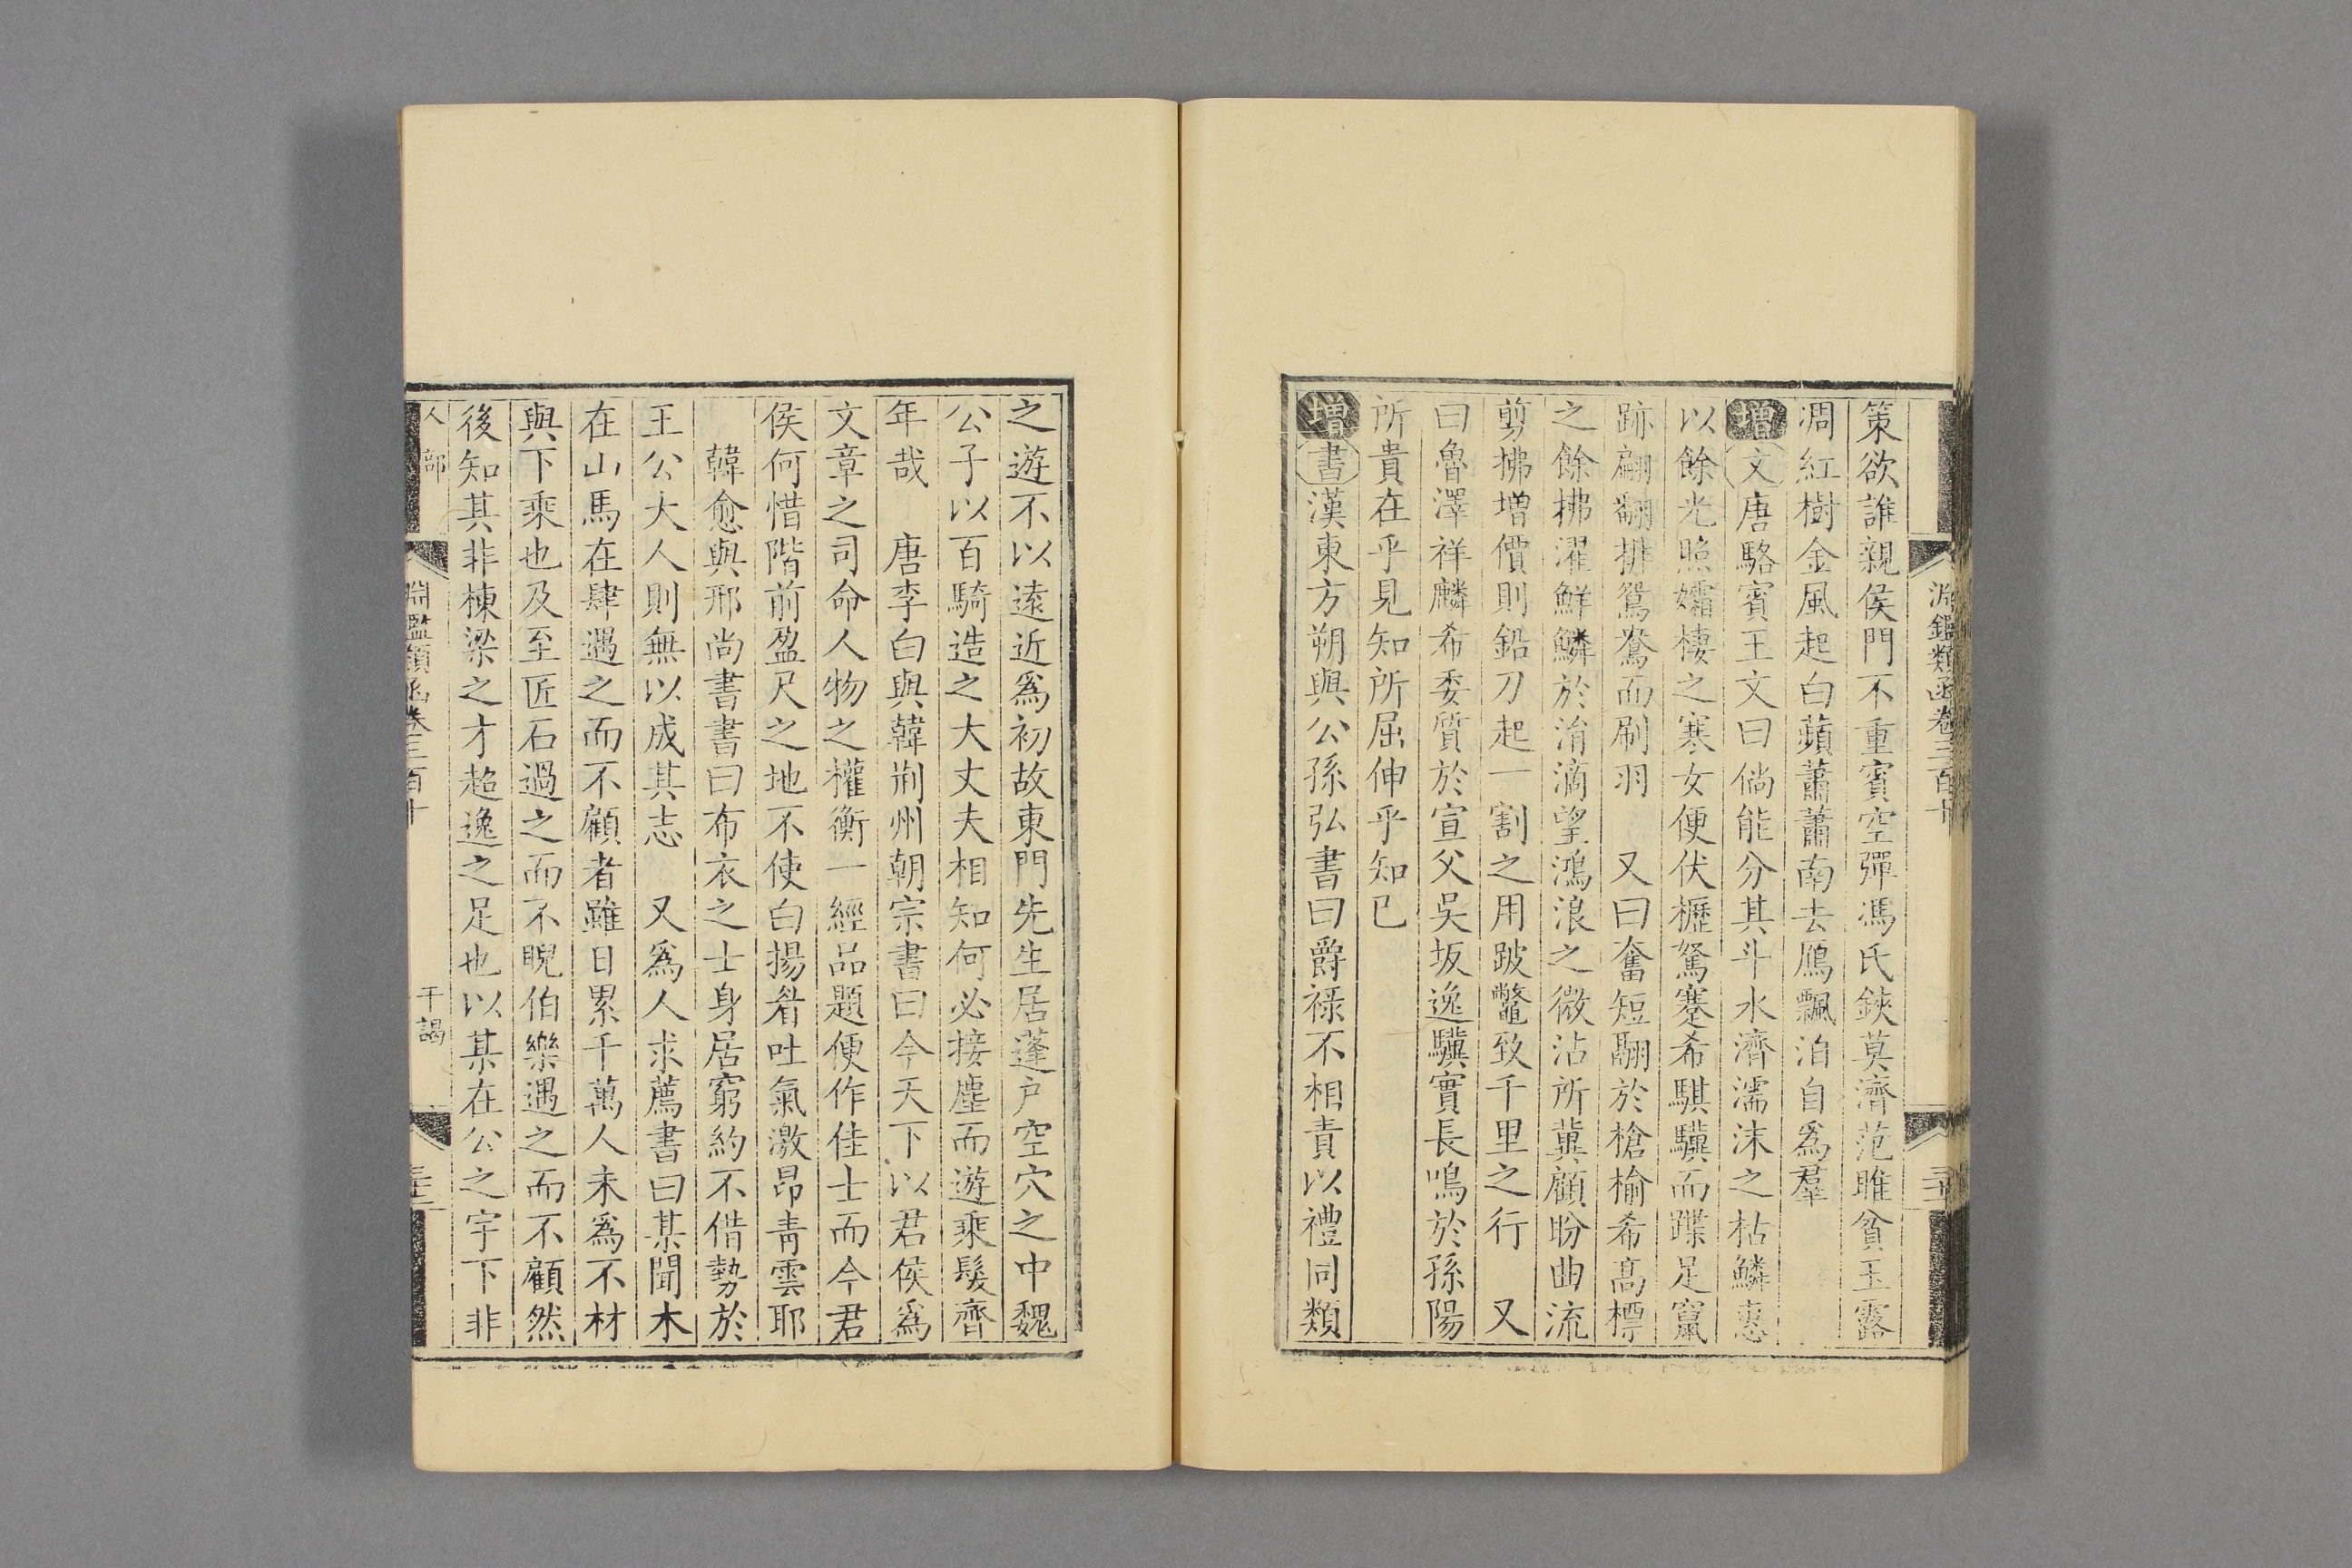 淵鑑類函卷三百十
策欲誰親侯門不重賓空彈馮氏鋏莫濟范雎貧玉露
凋紅樹金風起白蘋蕭蕭南去鴈飄泊自爲羣
增文唐駱賓王文曰倘能分其斗水濟濡沫之枯鱗惠
以餘光照孀棲之寒女便伏櫪駑蹇希騏驥而蹀足竄
跡翩翻排鴛鴦而刷羽　又曰奮短翮於槍榆希高標
之餘拂濯鮮鱗於涓滴望鴻浪之微沾所冀顧盼曲流
剪拂增價則鉛刀起一割之用跛鼈致千里之行　又
曰魯澤祥麟希委質於宣父吳坂逸驥實長鳴於孫陽
所貴在乎見知所屈伸乎知己
增書漢東方朔與公孫弘書曰爵祿不相責以禮同類
之遊不以遠近爲初故東門先生居蓬戶空穴之中魏
公子以百騎造之大丈夫相知何必接塵而遊乘髮齊
年哉　唐李白與韓荆州朝宗書曰今天下以君侯爲
文章之司命人物之權衡一經品題便作佳士而今君
侯何惜階前盈尺之地不使白揚眉吐氣激昂青雲耶
韓愈與邢尚書書曰布衣之士身居窮約不借勢於
王公大人則無以成其志　又爲人求薦書曰某聞木
在山馬在肆遇之而不顧者雖日累千萬人未爲不材
與下乘也及至匠石過之而不睨伯樂遇之而不顧然
後知其非棟梁之才超逸之足也以某在公之宇下非
人部　淵鑑類函卷三百十　干謁